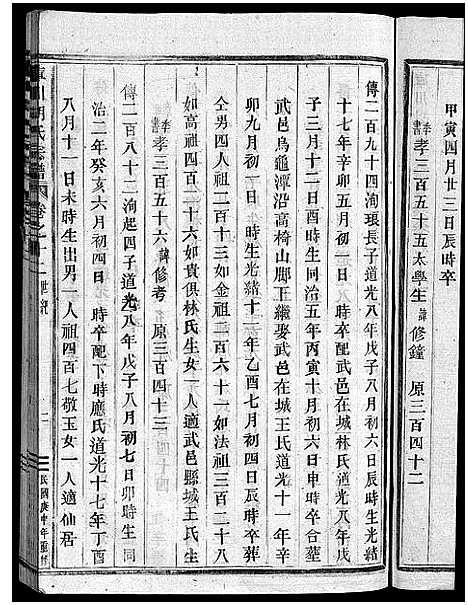 甲寅四月廿三日辰時卒
孝三百五十五太學生諱修鐘 原三百四十二
傳二百九十四洵琅長子道光八年戊子八月初六日辰時生光緒
十七年辛卯五月初一日 時卒配武邑在城林氏道光八年戊
子三月十二日戌時生同治五年丙寅十月初六日申時卒合塟
武邑烏龜潭沿高椅山脚王繼娶武邑在城王氏道光十一年辛
卯九月初一日 時生光緒十一年乙酉七月初八日辰時卒葬
仝男四人祖二百十三如金祖二百六十一如法祖三百二十八
如高祖四百一十六如貴俱林氏生女一人適武邑縣城王氏生
孝三百五十六諱修考 原三百四十三
傳二百八十二洵起四子道光八年戊子八月初七日卯時生同
治二年癸亥六月初四日 時卒配下時應氏道光十七年丁酉
八月十一日未時生出男一人祖四百七敬玉女一人適仙居
氏宗譜 卷之一 世紀
民國庚申年重修